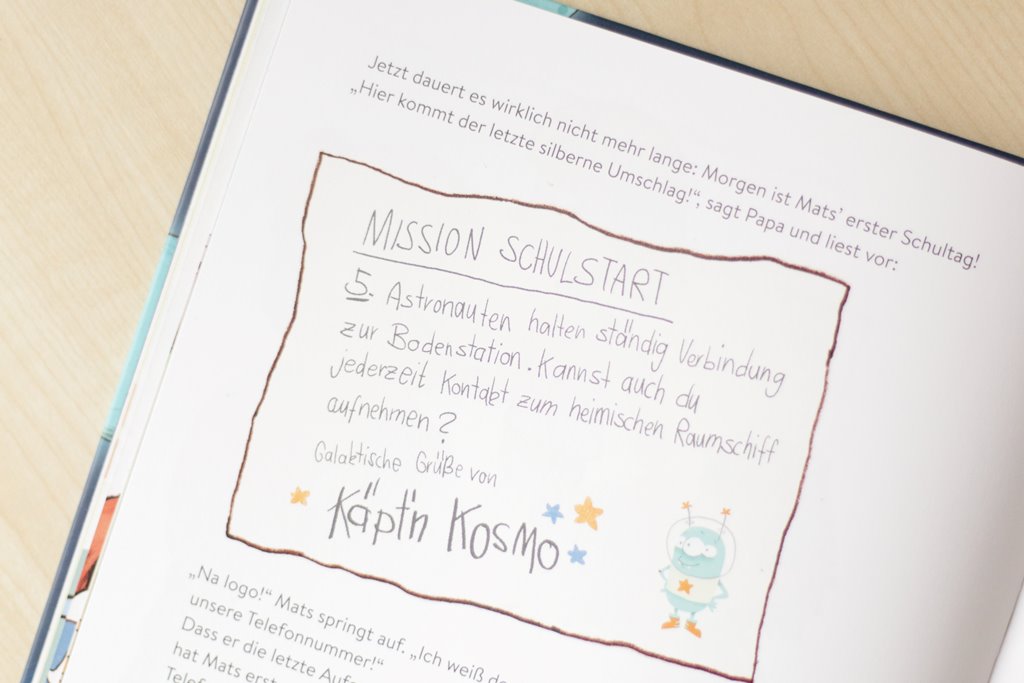 Jetzt dauert es wirklich nicht mehr lange: Morgen ist Mats’ erster Schultag!
„Hier kommt der letzte silberne Umschlag!“, sagt Papa und liest vor:
MISSION SCHULSTART
5. Astronauten halten ständig Verbindung
zur Bodenstation. Kannst auch du
jederzeit Kontakt zum heimischen Raumschiff
aufnehmen?
Galaktische Grüße von
Käpt'n Kosmo
„Na logo!“ Mats springt auf. „Ich weiß
unsere Telefonnummer!“
Dass er die letzte
hat Mats